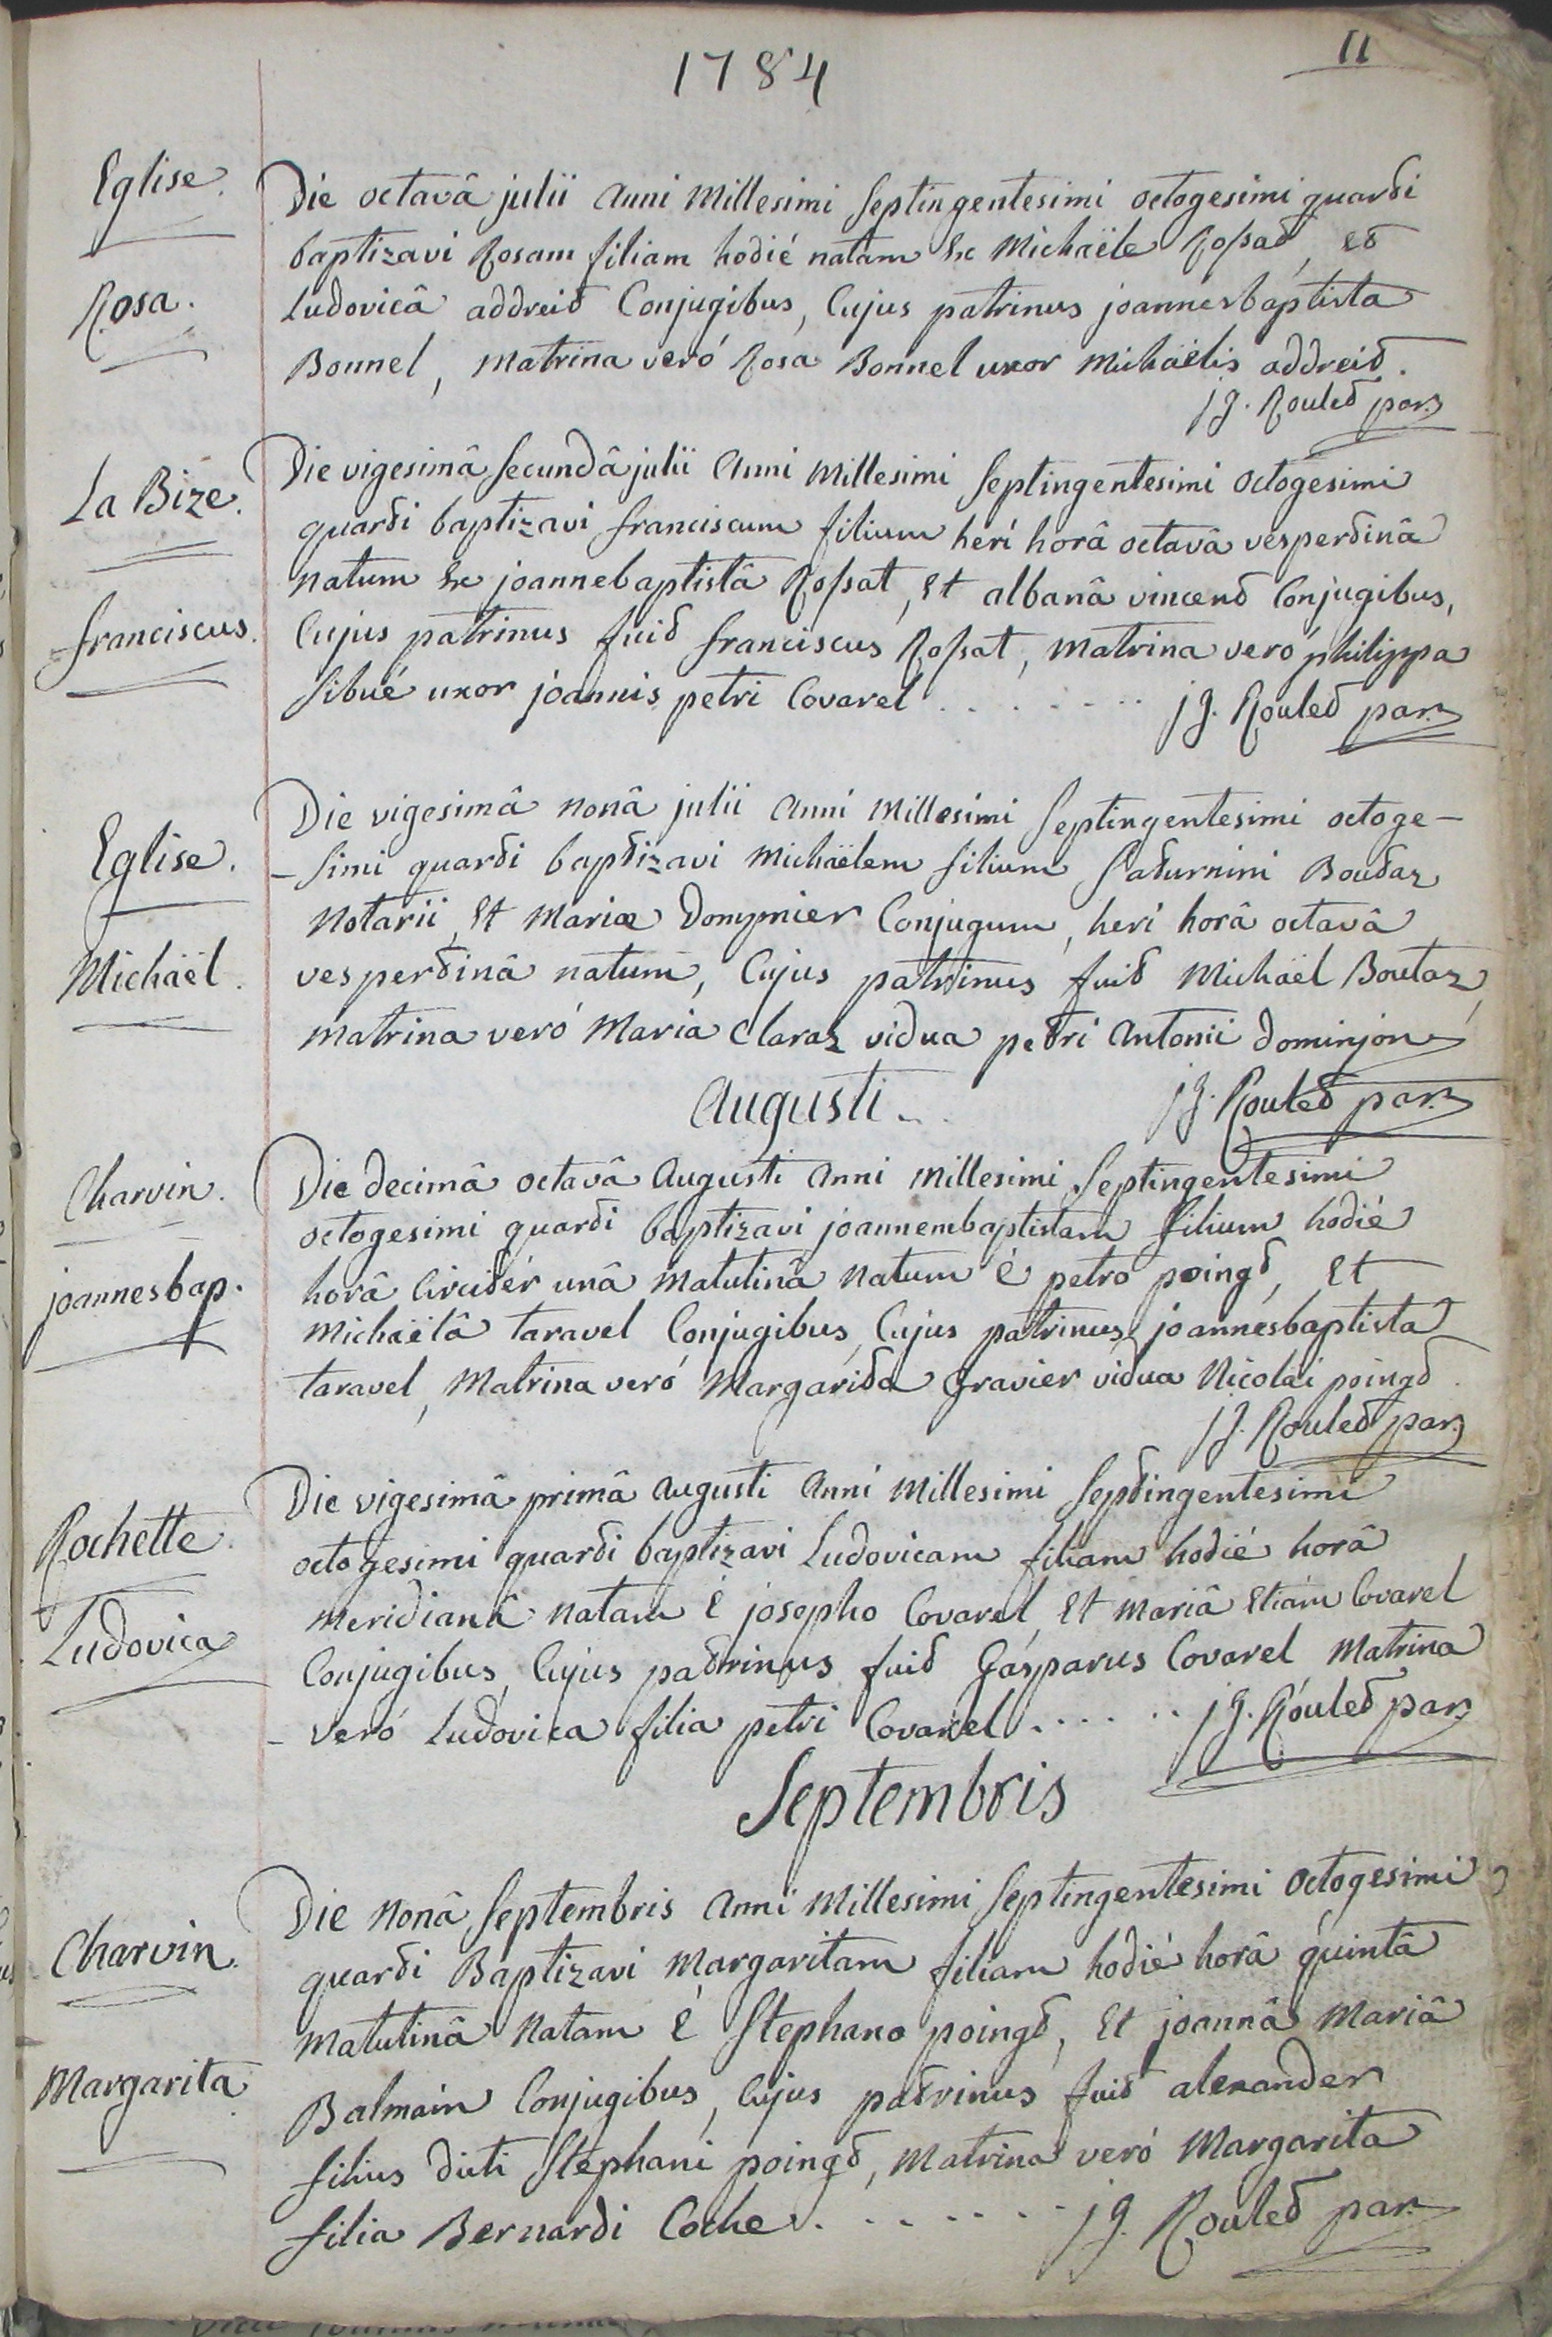 1784
11
Eglise.
Rosa.
Die octavâ julii anni Millesimi Septingentesimi octogesimi quarti
baptizavi Rosam filiam hodié natam Ex Michaële Rossat, et
Ludovicâ addreit Conjugibus, Cujus patrinus joannésbaptista
Bonnel, Matrina veró Rosa Bonnel uxor Michaëlis addreit.
jg. Roulet par.
La Bize.
franciscus.
Die vigesimâ Secundâ julii Anni Millesimi Septingentesimi octogesimi
quarti baptizavi franciscum filium herí horâ octavâ vespertinâ
natum Ex joannebaptistâ Rossat, Et albanâ vincent Conjugibus,
Cujus patrinus fuit franciscus Rossat, Matrina veró philippa
Sibué uxor joannis petri Covarel . . . . . . . jg. Roulet par.
Eglise.
Michaël.
Die vigesimâ nonâ julii Anni Millesimi Septingentesimi octoge-
-simi quarti baptizavi Michaëlem filium Saturnini Boutaz
Notarii, Et Mariæ Dompnier Conjugum, herí horâ octavâ
vespertinâ natum, Cujus patrinus fuit Michaël Boutaz,
matrina veró Maria Claraz vidua petri Antonii dominjon
jg. Roulet par.
Augusti
Charvin.
joannesbap.
Die decimâ octavâ Augusti Anni Millesimi Septingentesimi
octogesimi quarti baptizavi joannembaptistam filium hodié
horâ Circitér unâ Matutinâ natum é petro poingt, Et
Michaëlâ taravel Conjugibus, Cujus patrinus joannésbaptista
taravel, Matrina veró Margarita Gravier vidua Nicolai poingt.
jg. Roulet par.
Rochette.
Ludovica
Die vigesimâ primâ Augusti Anni Millesimi Septingentesimi
octogesimi quarti baptizavi Ludovicam filiam hodié horâ
meridianâ natam é josepho Covarel, Et mariâ Etiám Covarel
Conjugibus, Cujus patrinus fuit Gásparus Covarel, Matrina
- veró Ludovica filia petri Covarel . . . . . . jg. Roulet par.
Septembris
Charvin.
Margarita
Die Nonâ Septembris Anni Millesimi Septingentesimi octogesimi
quarti Baptizavi Margaritam filiam hodié horâ quintâ
Matutinâ Natam é Stephano poingt, Et joannâ Mariâ
Balmain Conjugibus, Cujus patrinus fuit alexander
filius dicti Stephani poingt, Matrina veró Margarita
filia Bernardi Coche . . . . . . . jg. Roulet par.